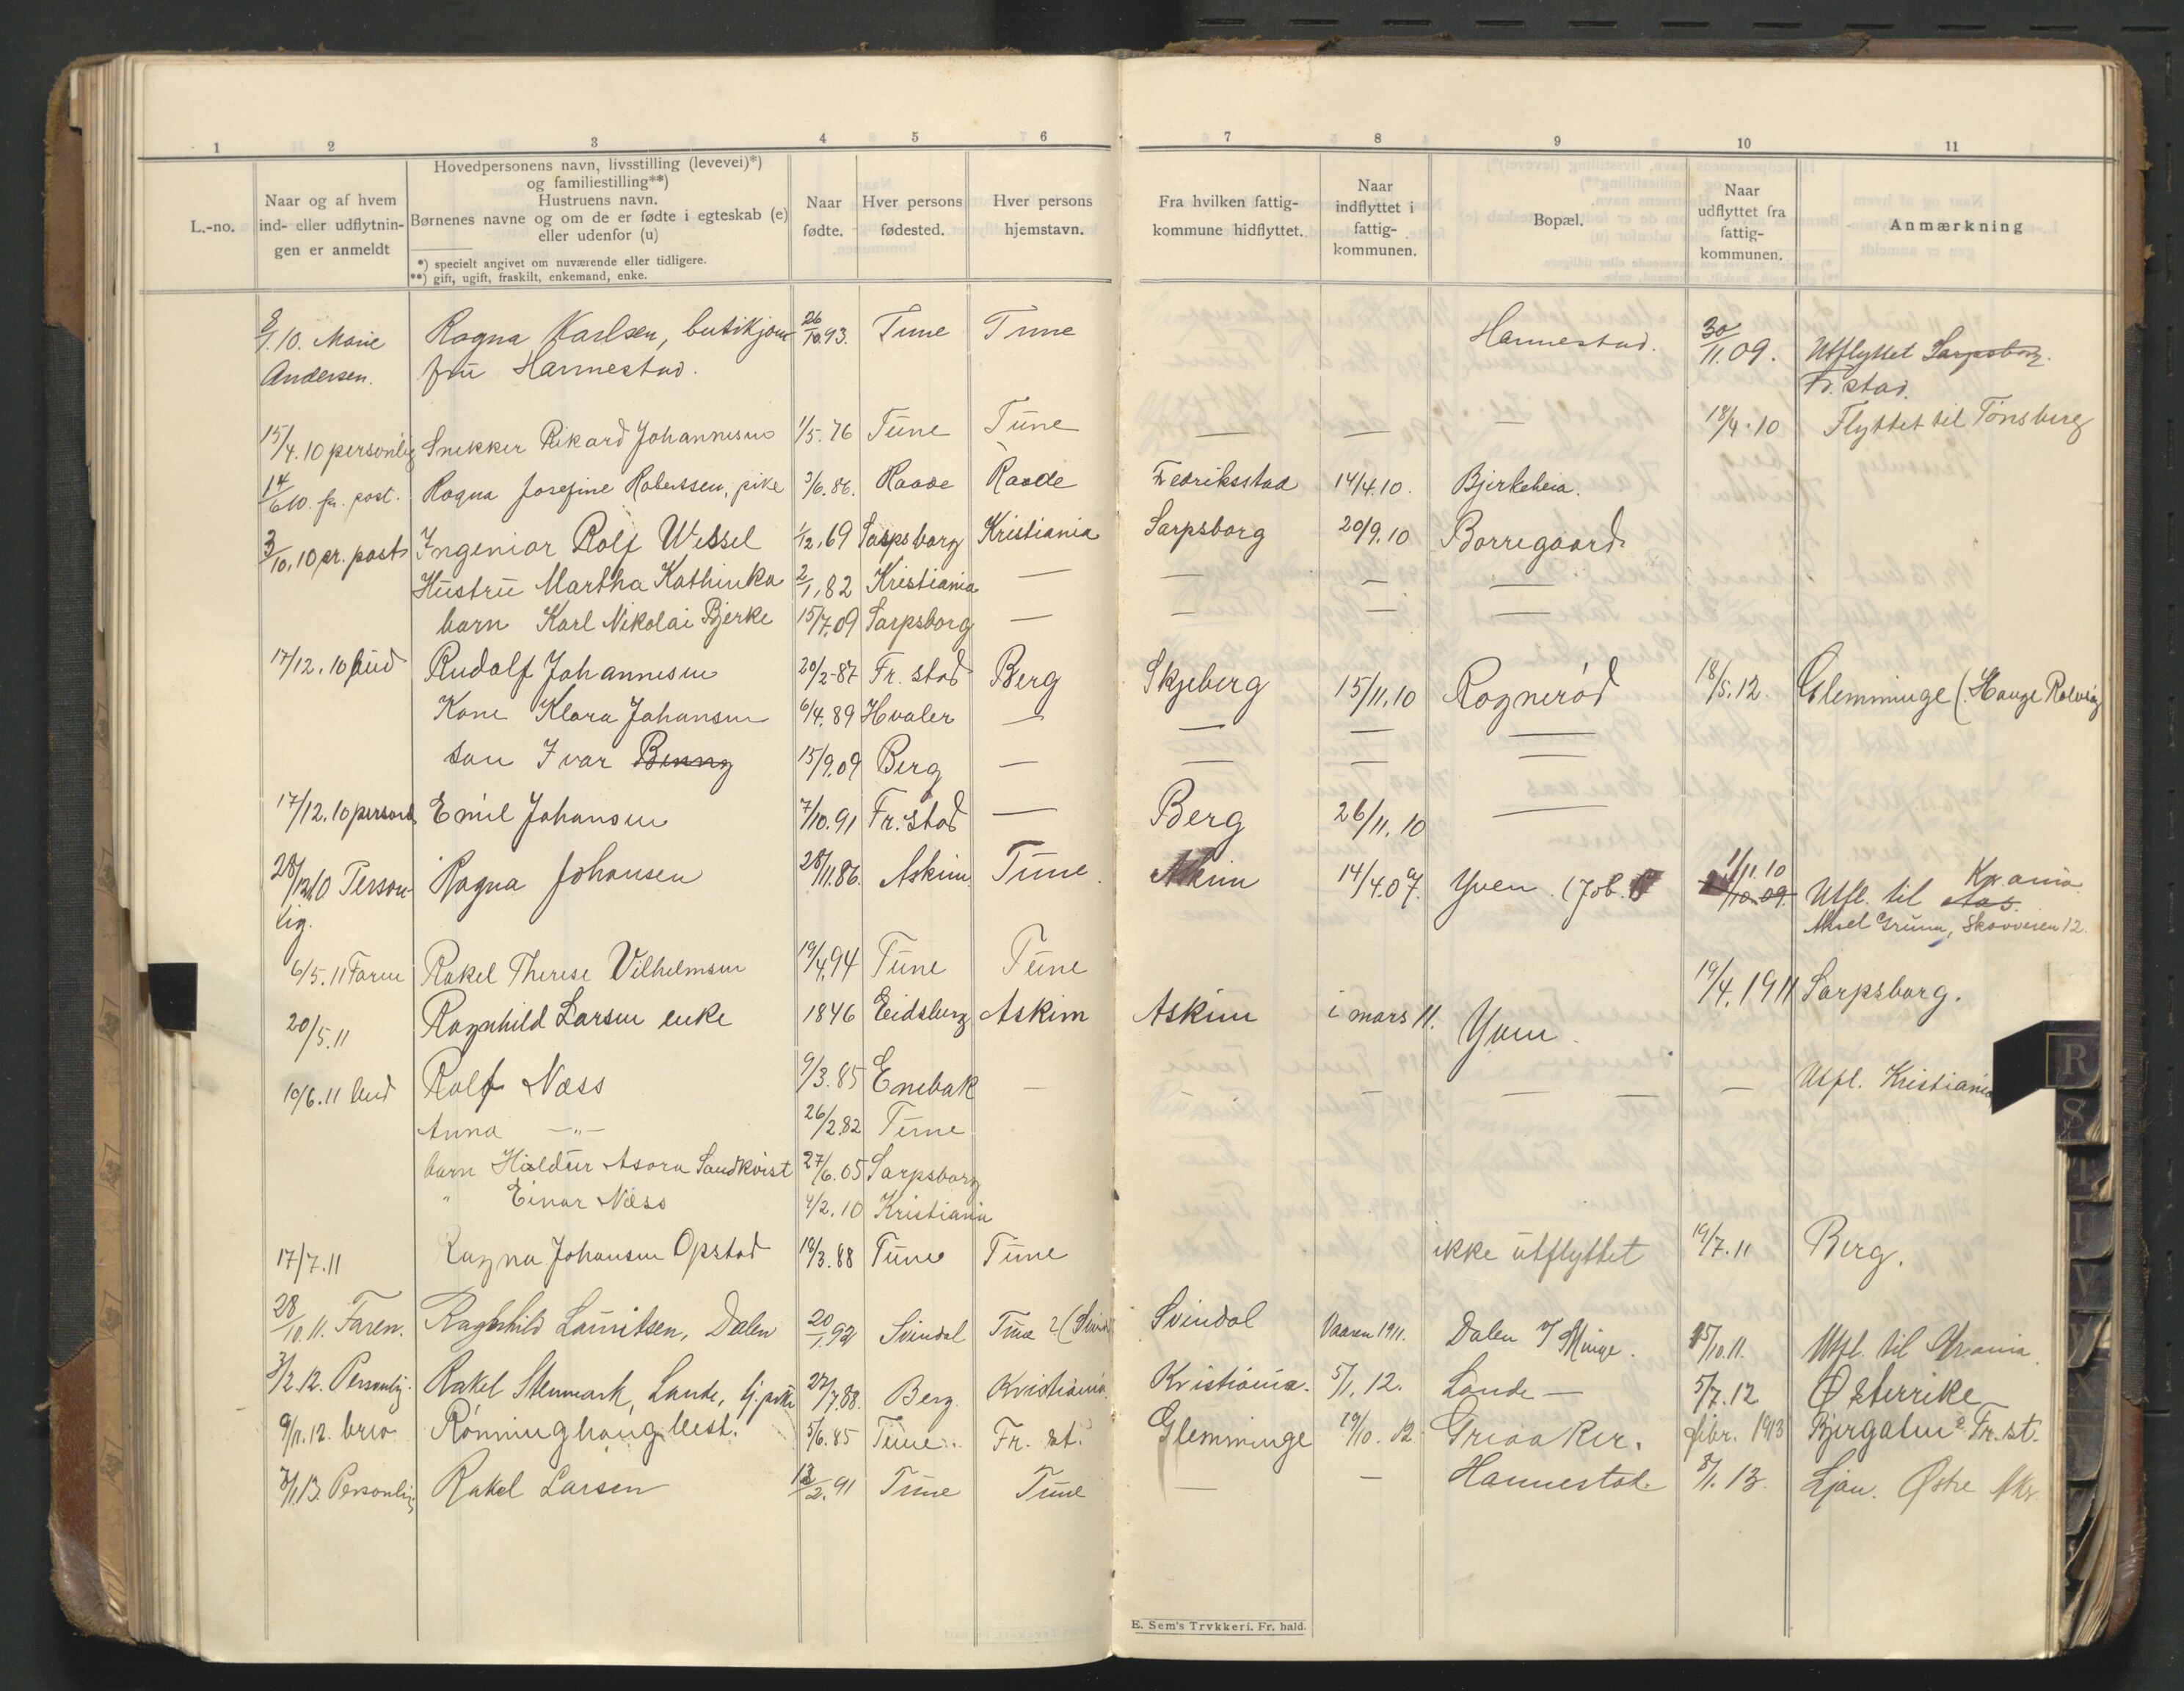 1 2 3 4 5 6 7 8 9 10 11
L.-no.
Naar og af hvem
ind- eller udflytnin-
gen er anmeldt
Hovedpersonens navn, livsstilling (levevei)*)
og familiestilling**)
Hustruens navn.
Børnenes navne og om de er fødte i egteskab (e)
eller udenfor (u)
*) specielt angivet om nuværende eller tidligere.
**) gift, ugift, fraskilt, enkemand, enke.
Naar
fødte.
Hver persons
fødested.
Hver persons
hjemstavn.
Fra hvilken fattig-
kommune hidflyttet.
Naar
indflyttet i
fattig-
kommunen.
Bopæl.
Naar
udflyttet fra
fattig-
kommunen.
Anmærkning
8/1.10. Marie Ragna Karlsen, butikjom 26/10.93. Tune Tune Hannestad. 30/11.09. Utflyttet Sarpsborg.
Andersen. fru Hannestad. Fr. stad.
15/4.10 personlig Snekker Rikard Johannesen 1/5.76 Tune Tune — — — 18/4.10 Flyttet til Tønsberg
14/6 10. pr. post. Ragna Josefine Robertsen, pike 3/6.86. Raade Raade Fredriksstad 14/4.10. Bjerkeheia.
3/10.10 pr. post Ingeniør Rolf Wessel 1/12.69 Sarpsborg Kristiania Sarpsborg 20/9.10 Borregaard
Hustru Martha Kathinka 2/1.82 Kristiania — — — —
barn Karl Nikolai Bjerke 15/7.09 Sarpsborg — — — —
17/12.10 bud Rudolf Johannesen 20/2-87 Fr. stad Berg Skjeberg 15/11.10 Rognerød 18/5.12. Glemminge (Hauge Rolvsøy
Kone Klara Johansen 6/4.89 Hvaler — — — —
søn Ivar Benny 15/9.09 Berg — — — —
17/12.10 personl Emil Johansen 7/10.91 Fr. stad — Berg 26/11.10 —
28/12.10 Person- Ragna Johansen 28/11.86. Askim Tune. Askim 14/4.07. Yven. (Job. 1/11.10 Kr.ania.
lig. /10.09. Utfl. til Aas.
Aksel Gruner, Skovveien 12.
6/5.11 Faren Rakel Therese Vilhelmsen 19/4.94 Tune Tune 19/4.1911 Sarpsborg.
20/5.11 Ragnhild Larsen enke 1846 Eidsberg Askim Askim i mars 11. Yven.
10/6.11 bud Rolf Næss 9/3.85 Enebak — — — — — Utfl. Kristiania
Anna —"— 26/2.82 Tune
barn Hildur Asora Sandkvist 27/6.05 Sarpsborg
" Einar Næss 4/2.10 Kristiania
17/7.11 Ragna Johansen Opstad 18/3.88 Tune Tune ikke utflyttet 19/7.11 Berg.
28/10.11. Faren. Ragnhild Lauritsen, Dalen 20/1.92 Svindal Tune ? (Svind Svindal Vaaren 1911. Dalen i Minge. 15/10.11. Utfl. til Kr.ania.
3/2.12. Personlig. Rakel Stenmark, Lande, tj.pike 27/7.88. Berg. Kristiania. Kristiania. 5/1.12. Lande — 5/7.12 Østerrike
9/11.12. brev Rønninghaug Vest. 5/6.85 Tune. Fr. st. Glemminge 19/10.12. Greaaker. febr. 1913 Bjergaten 2 Fr.st.
7/1.13. Personlig Rakel Larsen 13/2.91 Tune Tune — — Hannestad. 8/1.13. Ljan. Østre Aker
E. Sem's Trykkeri. Fr. hald.
R
S
T
U
V